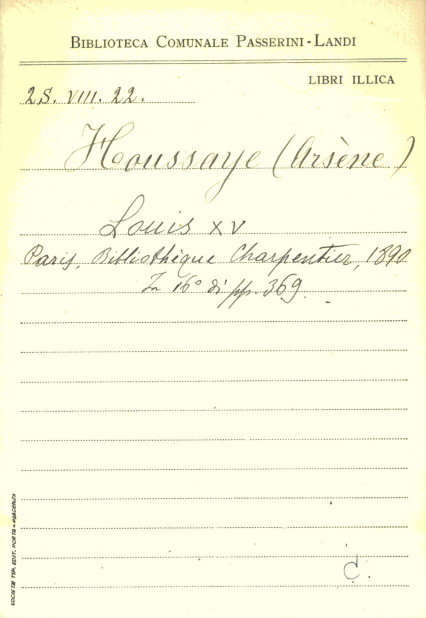 BIBLIOTECA COMUNALE PASSERINI-LANDI
LIBRI ILLICA
2S. VIII. 22.
Houssaye (Arsène)
Louis XV
Paris, Bibliothèque Charpentier, 1890
In 16° di pp. 369.
C.
SOCIETÀ TIP. EDIT. PORTA - PIACENZA